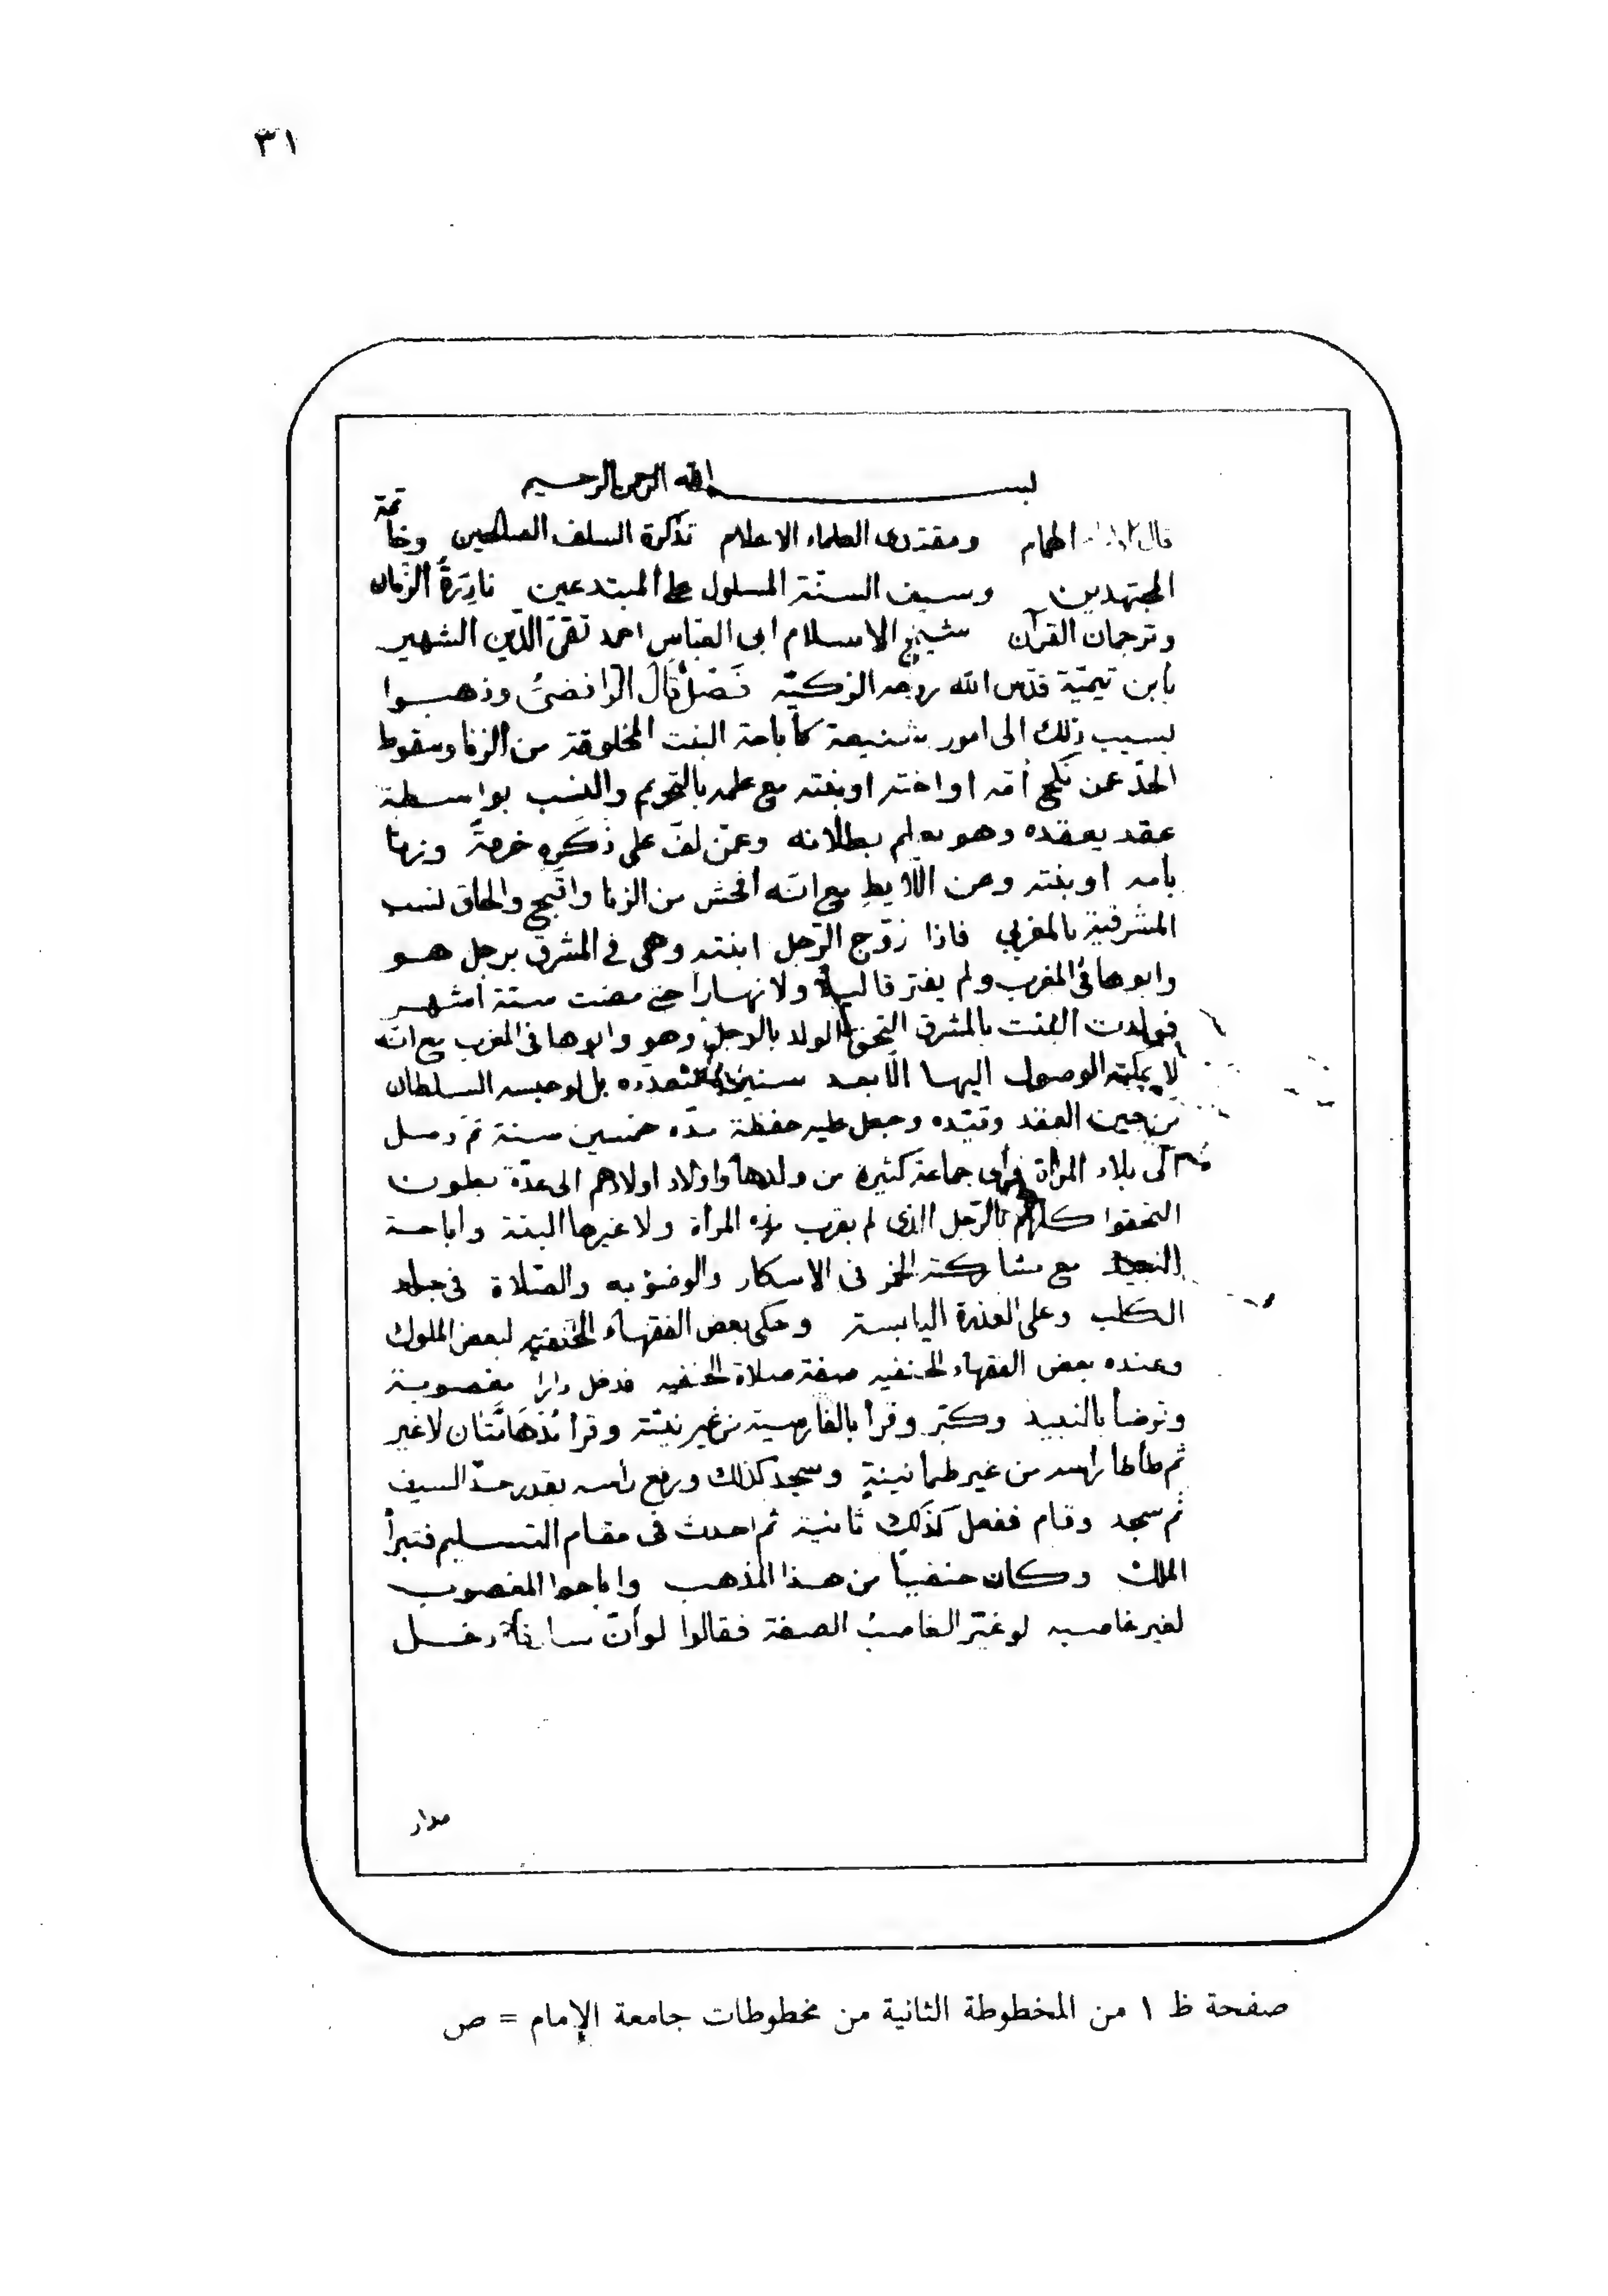 ٣١
بسم الله الرحمن الرحيم
قال الهمام ومقتدى العلماء الاعلام تذكرة السلف الصالحين وخاتمة
المجتهدين وسيف السنّة المسلول على المبتدعين نادِرَةُ الزّمان
وترجمان القرآن شيخ الاسلام ابى العباس احمد تقىّ الدّين الشهير
بابن تيميّة قدّس الله روحه الزكيّة فَصْلٌ قَالَ الرّافضىُّ وذهبوا
بسبب ذلك الى امور شنيعة كأباحة البنت المخلوقة من الزنا وسقوط
الحدّ عمن نكح أمّه او اخته او بنته مع علمه بالتحريم والنسب بواسطة
عقد يعقده وهو يعلم بطلانه وعمّن لفّ على ذكَرِهِ خرقةً وزنا
بأمه او بنته وعن اللّايط مع انّه افحش من الزنا واقبح والحاق نسب
المشرقية بالمغربي فاذا زوّج الرّجل ابنته وهى فى المشرق برجل هو
وابوها فى المغرب ولم يفترقا ليلاً ولا نهاراً حتى مضت ستة أشهر
فولدت البنت بالمشرق التحق الولد بالرجل وهو وابوها فى المغرب مع انّه
لا يمكنه الوصول اليها الّا بعد سنين متعدده بل لو حبسه السلطان
من حين العقد وقيّده وجعل عليه حفظة مدّه خمسين سنة ثم وصل
الى بلاد المرأة فرأى جماعة كثيرة من ولدها واولاد اولادهم الى عدّة بطون
التحقوا كلهم بالرّجل الذى لم يقرب هذه المرأة ولا غيرها البتة واباحة
النبيذ مع مشاركته الخمر فى الاسكار والوضوء به والصّلاة فى جلد
الكلب وعلى العذرة اليابسة وحكى بعض الفقهاء الحنفيه لبعض الملوك
وعنده بعض الفقهاء الحنفيه صفة صلاة الحنفيه فدخل دارا مغصوبة
وتوضأ بالنبيذ وكبّر وقرأ بالفارسية من غير نيّة وقرأ مُدْهَامَّتَان لا غير
ثم طأطأ رأسه من غير طمانينةٍ وسجد كذلك ورفع رأسه بقدر حدّ السيف
ثم سجد وقام ففعل كذلك ثانية ثم احدث فى مقام التسليم فتبرأ
الملك وكان حنفياً من هذا المذهب واباحوا المغصوب
لغير غاصبه لو غيّر الغاصبُ الصفة فقالوا لو أنّ سارقاً دخل
مدار
صفحة ظ ١ من المخطوطة الثانية من مخطوطات جامعة الإمام = ص